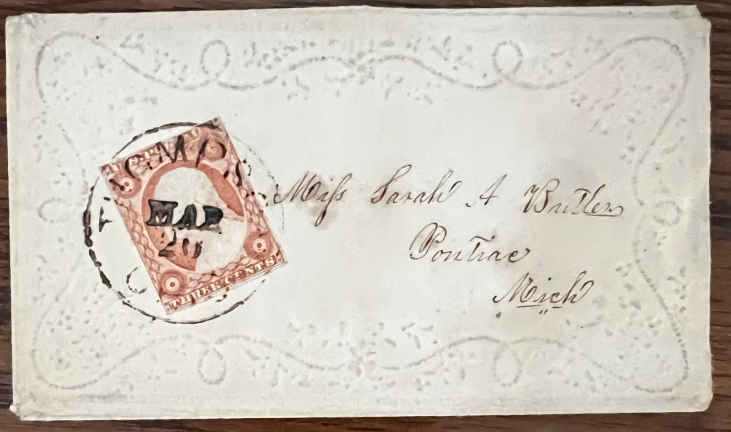 MAR
20
THREE CENTS
Miſs Sarah A Butler
Pontiac
Mich